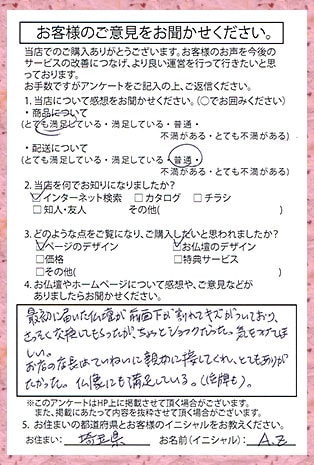 お客様のご意見をお聞かせください。
当店でのご購入ありがとうございます。お客様のお声を今後の
サービスの改善につなげ、より良い運営を行って行きたいと思
っております。
お手数ですがアンケートをご記入の上、ご返信ください。
1. 当店について感想をお聞かせください。(○でお囲みください)
・商品について
(とても満足している・満足している・普通・
不満がある・とても不満がある)
・配送について
(とても満足している・満足している・普通・
不満がある・とても不満がある)
2. 当店を何でお知りになりましたか?
☑インターネット検索 □カタログ □チラシ
□知人・友人 その他( )
3. どのような点をご覧になり、ご購入したいと思われましたか?
☑ページのデザイン ☑お仏壇のデザイン
□価格 □特典サービス
□その他( )
4. お仏壇やホームページについて感想や、ご意見などが
ありましたらお聞かせください。
最初に届いた仏壇が前面下が割れてキズがついており、
さっそく交換してもらったが、ちょっとショックだった。気をつけてほ
しい。
お店の店長はていねいに親切に接してくれ、とてもありが
たかった。仏壇にも満足している。(位牌も)。
※このアンケートはHP上に掲載させて頂く場合がございます。
また、掲載にあたって内容を抜粋させて頂く場合がございます。
5. お住まいの都道府県とお客様のイニシャルをお教えください。
お住まい: 埼玉県 お名前(イニシャル): A.Z